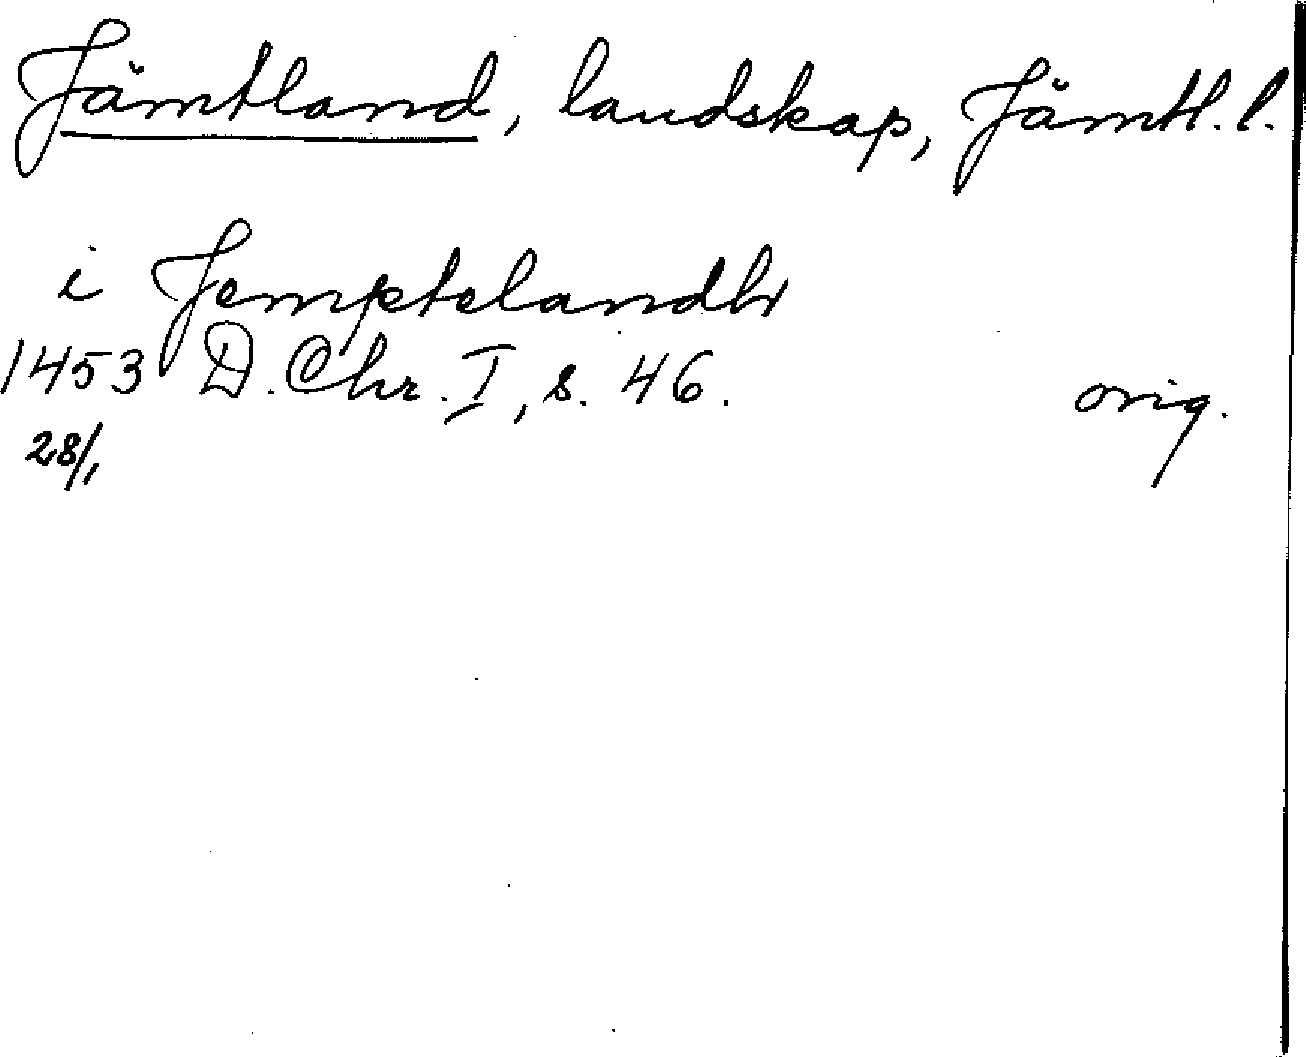 Jämtland, landskap, Jämtl. l.
i Jemptelandh
1453 D. Chr. I, s. 46. orig.
28/1